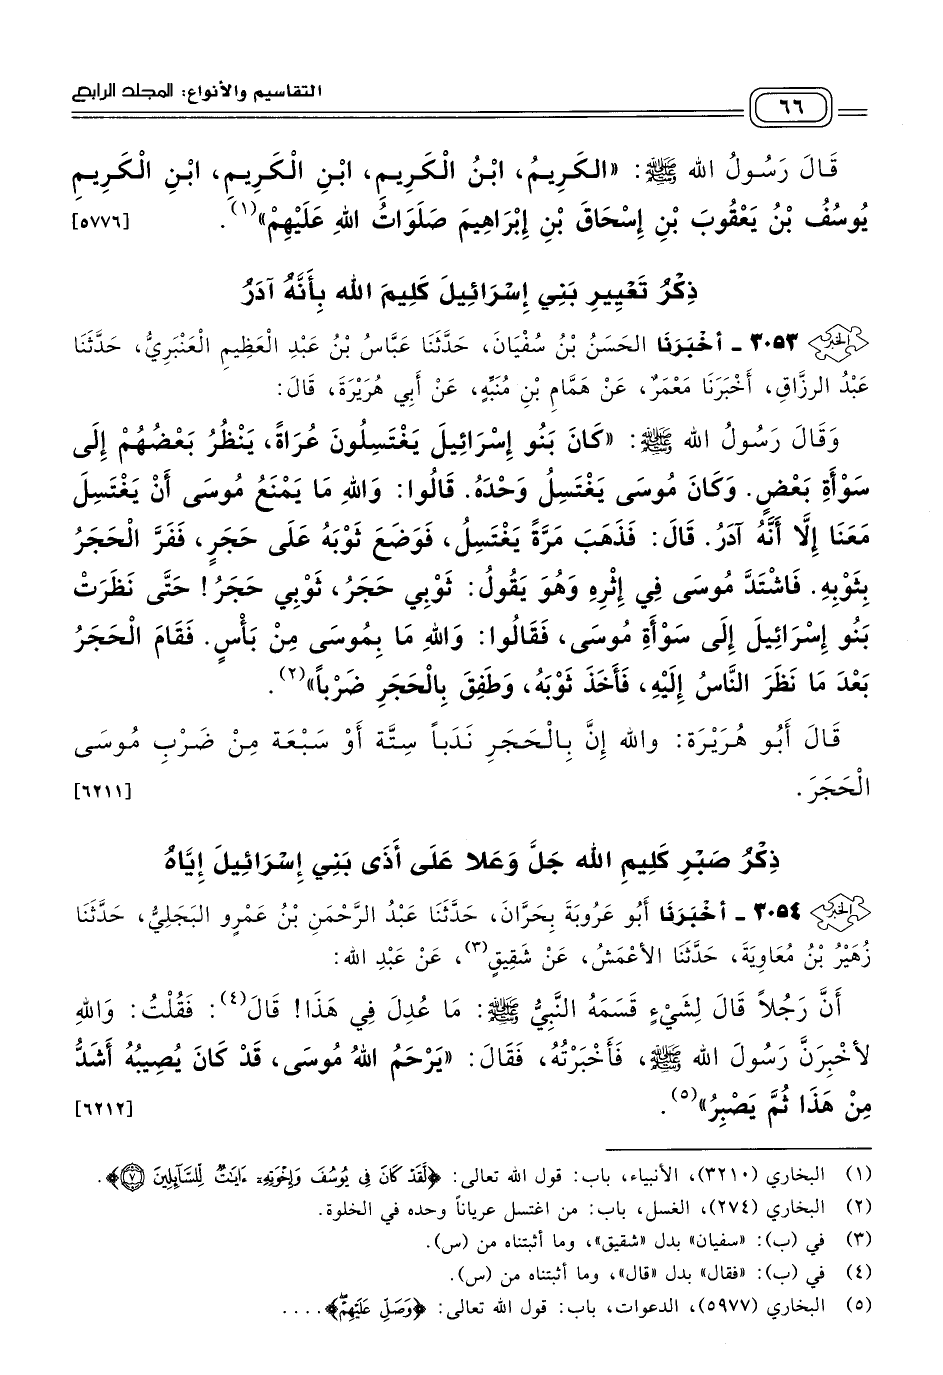 ٦٦ التقاسيم والأنواع: المجلد الرابع
قَالَ رَسُولُ الله ﷺ: «الكَرِيمُ، ابْنُ الْكَرِيمِ، ابْنِ الْكَرِيمِ، ابْنِ الْكَرِيمِ
يُوسُفُ بْنُ يَعْقُوبَ بْنِ إِسْحَاقَ بْنِ إِبْرَاهِيمَ صَلَوَاتُ اللهِ عَلَيْهِمْ»(١). [٥٧٧٦]
ذِكْرُ تَعْيِيرِ بَنِي إِسْرَائِيلَ كَلِيمَ الله بِأَنَّهُ آدَرُ
٣٠٥٣ ـ أَخْبَرَنَا الحَسَنُ بْنُ سُفْيَانَ، حَدَّثَنَا عَبَّاسُ بْنُ عَبْدِ الْعَظِيمِ الْعَنْبَرِيُّ، حَدَّثَنَا
عَبْدُ الرزَّاقِ، أَخْبَرَنَا مَعْمَرٌ، عَنْ هَمَّامِ بْنِ مُنَبِّهٍ، عَنْ أَبِي هُرَيْرَةَ، قَالَ:
وَقَالَ رَسُولُ الله ﷺ: «كَانَ بَنُو إِسْرَائِيلَ يَغْتَسِلُونَ عُرَاةً، يَنْظُرُ بَعْضُهُمْ إِلَى
سَوْأَةِ بَعْضٍ. وَكَانَ مُوسَى يَغْتَسِلُ وَحْدَهُ. قَالُوا: وَاللهِ مَا يَمْنَعُ مُوسَى أَنْ يَغْتَسِلَ
مَعَنَا إِلَّا أَنَّهُ آدَرُ. قَالَ: فَذَهَبَ مَرَّةً يَغْتَسِلُ، فَوَضَعَ ثَوْبَهُ عَلَى حَجَرٍ، فَفَرَّ الْحَجَرُ
بِثَوْبِهِ. فَاشْتَدَّ مُوسَى فِي إِثْرِهِ وَهُوَ يَقُولُ: ثَوْبِي حَجَرُ، ثَوْبِي حَجَرُ! حَتَّى نَظَرَتْ
بَنُو إِسْرَائِيلَ إِلَى سَوْأَةِ مُوسَى، فَقَالُوا: وَاللهِ مَا بِمُوسَى مِنْ بَأْسٍ. فَقَامَ الْحَجَرُ
بَعْدَ مَا نَظَرَ النَّاسُ إِلَيْهِ، فَأَخَذَ ثَوْبَهُ، وَطَفِقَ بِالْحَجَرِ ضَرْباً»(٢).
قَالَ أَبُو هُرَيْرَةَ: والله إِنَّ بِالْحَجَرِ نَدَباً سِتَّة أَوْ سَبْعَة مِنْ ضَرْبِ مُوسَى
الْحَجَرَ. [٦٢١١]
ذِكْرُ صَبْرِ كَلِيمِ الله جَلَّ وَعَلا عَلَى أَذَى بَنِي إِسْرَائِيلَ إِيَّاهُ
٣٠٥٤ ـ أَخْبَرَنَا أَبُو عَرُوبَةَ بِحَرَّانَ، حَدَّثَنَا عَبْدُ الرَّحْمَنِ بْنُ عَمْرٍو البَجَلِيُّ، حَدَّثَنَا
زُهَيْرُ بْنُ مُعَاوِيَةَ، حَدَّثَنَا الأَعْمَشُ، عَنْ شَقِيقٍ(٣)، عَنْ عَبْدِ الله:
أَنَّ رَجُلاً قَالَ لِشَيْءٍ قَسَمَهُ النَّبِيُّ ﷺ: مَا عُدِلَ فِي هَذَا! قَالَ(٤): فَقُلْتُ: وَاللهِ
لأُخْبِرَنَّ رَسُولَ الله ﷺ، فَأَخْبَرْتُهُ، فَقَالَ: «يَرْحَمُ اللهُ مُوسَى، قَدْ كَانَ يُصِيبُهُ أَشَدُّ
مِنْ هَذَا ثُمَّ يَصْبِرُ»(٥). [٦٢١٢]
(١) البخاري (٣٢١٠)، الأنبياء، باب: قول الله تعالى: ﴿لَقَدْ كَانَ فِي يُوسُفَ وَإِخْوَتِهِۦ ءَايَٰتٌ لِّلسَّآئِلِينَ ٧﴾.
(٢) البخاري (٢٧٤)، الغسل، باب: من اغتسل عرياناً وحده في الخلوة.
(٣) في (ب): «سفيان» بدل «شقيق»، وما أثبتناه من (س).
(٤) في (ب): «فقال» بدل «قال»، وما أثبتناه من (س).
(٥) البخاري (٥٩٧٧)، الدعوات، باب: قول الله تعالى: ﴿وَصَلِّ عَلَيْهِمْ﴾....